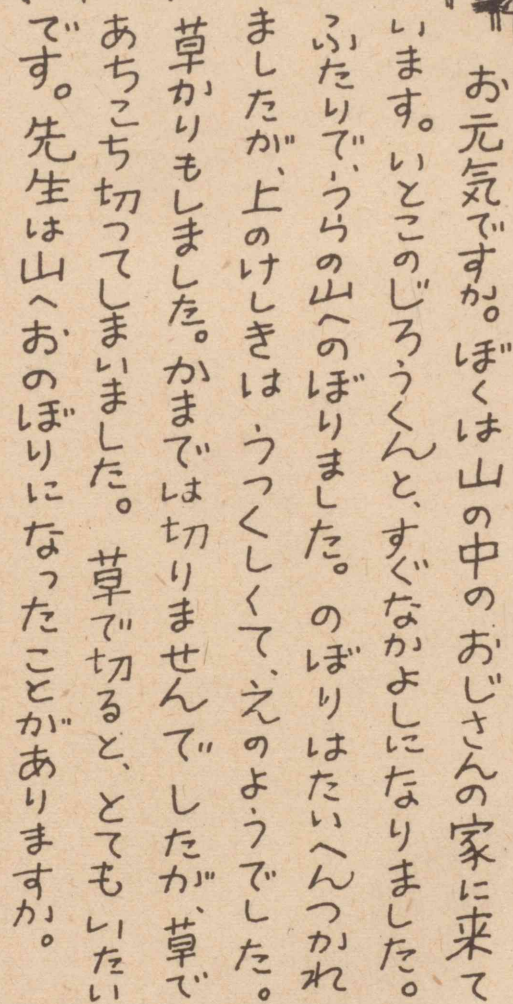 お元気ですか。ぼくは山の中のおじさんの家に来て
います。いとこのじろうくんと、すぐなかよしになりました。
ふたりで、うらの山へのぼりました。のぼりはたいへんつかれ
ましたが、上のけしきは うつくしくて、えのようでした。
草かりもしました。かまでは切りませんでしたが、草で
あちこち切ってしまいました。 草で切ると、とても いたい
です。先生は山へおのぼりになったことがありますか。